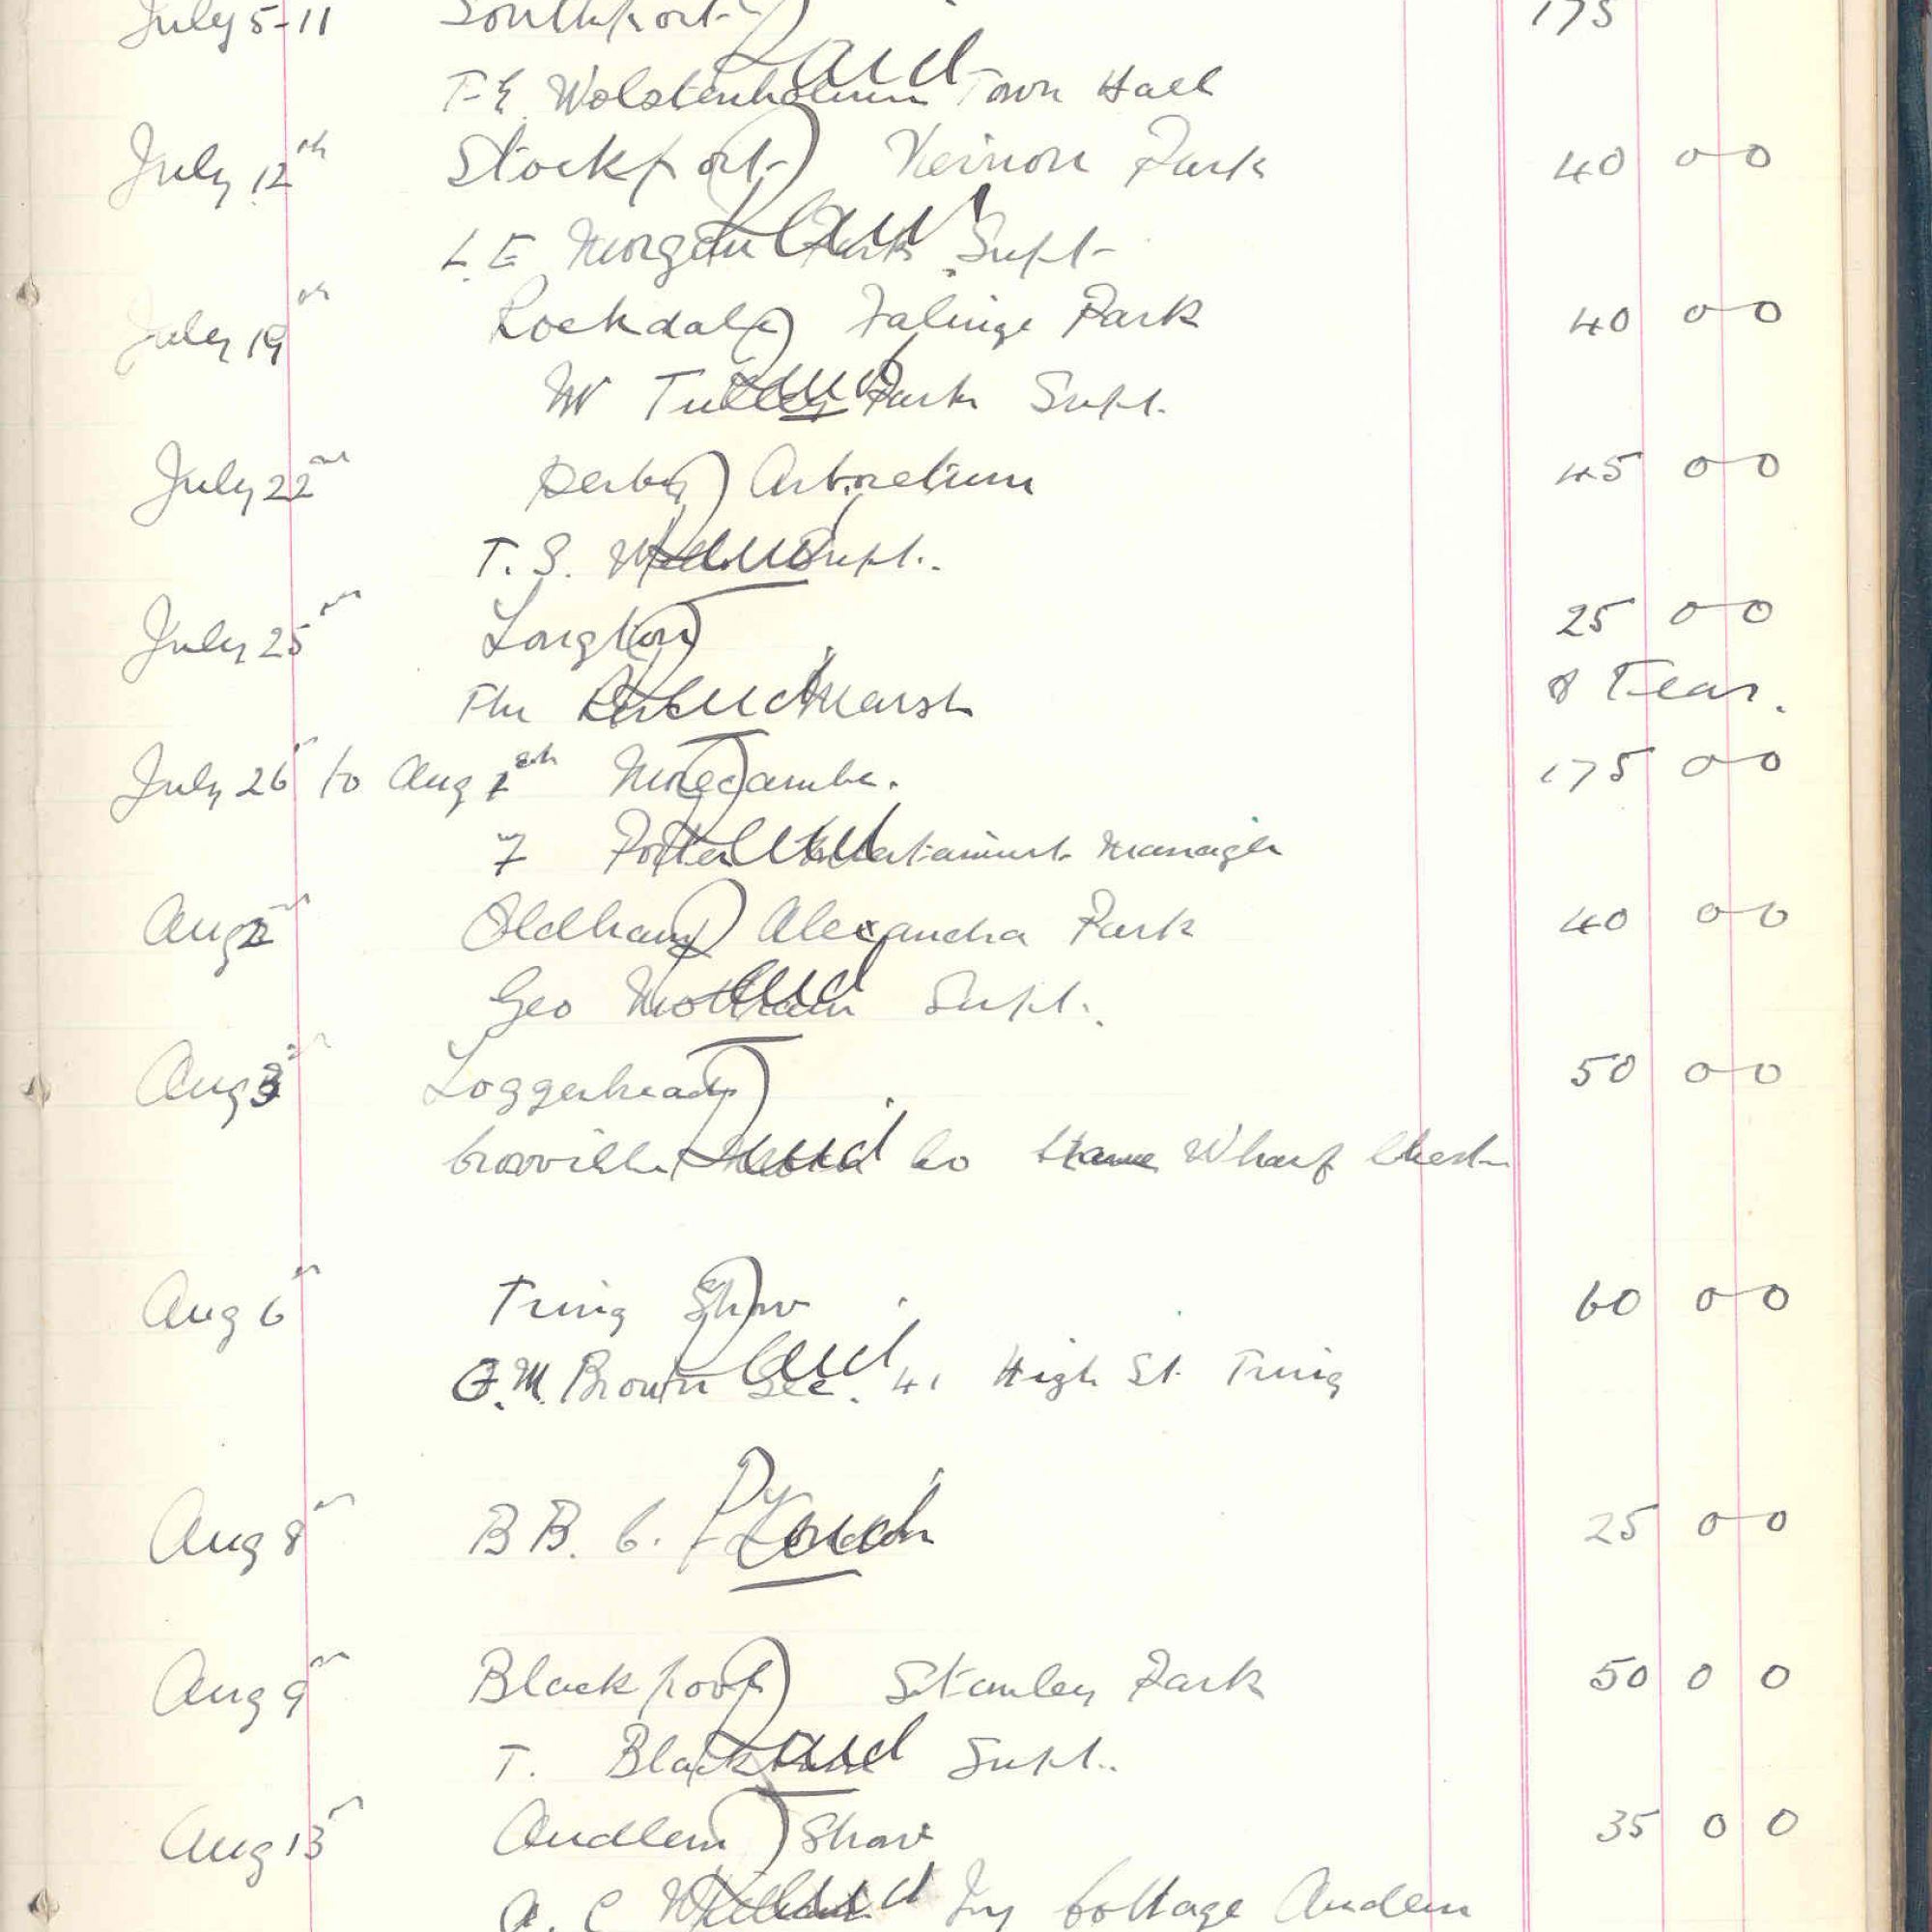 July 5-11 Southport 175
Paid
T. E. Wolstenholme Town Hall
July 12th Stockport Vernon Park 40 0 0
Paid
L. E. Morgan Parks Supt
July 19th Rochdale Falinge Park 40 0 0
Paid
Mr Tulley Park Supt.
July 22nd Derby Arboretum 45 0 0
Paid
T. S. Supt.
July 25th Longton 25 0 0
Paid
The Marsh & Teas.
July 26th to Aug 1 Morecambe. 175 0 0
Paid
F Porter Entertainment Manager
Aug 2 Oldham Alexandra Park 40 0 0
Paid
Geo Mottram Supt.
Aug 3 Loggerheads 50 0 0
Paid
Crosville Motor Co Crane Wharf Chester
Aug 6th Tring Show 60 0 0
Paid
F. M. Brown Sec. 41 High St. Tring
Aug 8th B B. C. London 25 0 0
Paid
Aug 9th Blackpool Stanley Park 50 0 0
Paid
T. Supt.
Aug 13th Audlem Show 35 0 0
Paid
A. C Ivy Cottage Audlem